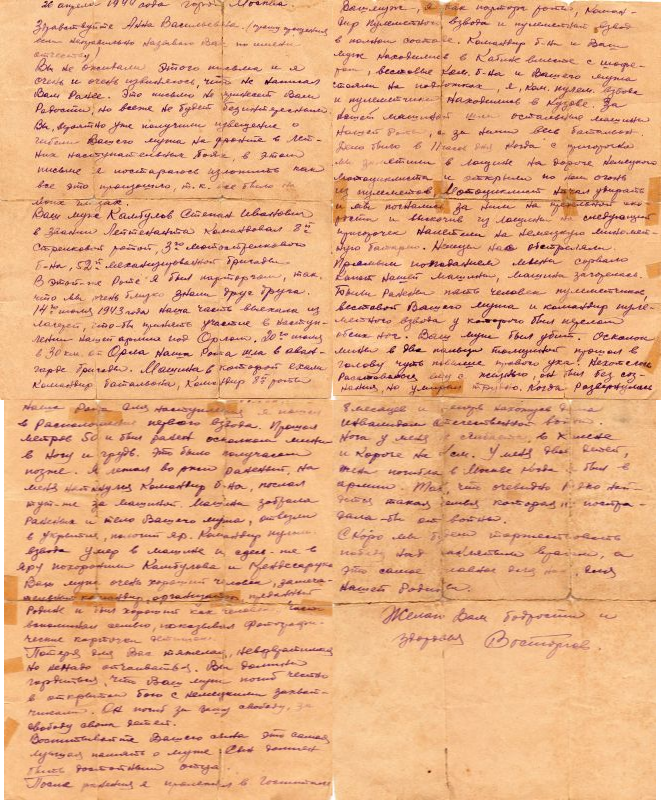 26 апреля 1944 года город Москва.
Здравствуйте Анна Васильевна (прошу прощения
если неправильно называю Вас по имени
отчеству)
Вы не ожидали этого письма и я
очень и очень извиняюсь, что не написал
Вам ранее. Это письмо не принесет Вам
радости, но всё же не будет безинтересным
Вы, вероятно уже получили извещение о
гибели Вашего мужа на фронте в лет-
них наступательных боях, в этом
письме я постараюсь изложить как
все это произошло, т.к. все было на
моих глазах.
Ваш муж Камбулов Степан Иванович
в звании Лейтенанта командовал 8ой
стрелковой ротой, 3го мотострелкового
б-на, 52ой механизированной бригады
В этой-же роте я был парторгом, так,
что мы очень близко знали друг друга.
14го июля 1943 года наша часть выехала из
лагерей, что-бы принять участие в наступ-
лении нашей армии под Орлом, 20го июля
в 30 км. от Орла наша рота шла в аван-
гарде бригады. Машина в которой ехали
командир батальона, командир 8ой роты
Ваш муж, я как парторг роты, коман-
дир пулеметного взвода и пулеметный взвод
в полном составе. Командир б-на и Ваш
муж находились в кабине вместе с шофе-
ром, вестовые ком. б-на и Вашего мужа
стояли на подножках, я, ком. пулем. взвода
и пулеметчики находились в кузове. За
нашей машиной шли остальные машины
нашей роты, а за ними весь батальон.
Дело было в дня когда с пригорка
мы заметили в лощине на дороге немецкого
мотоциклиста и открыли по нём огонь
из пулеметов. Мотоциклист начал удирать
и мы погнались за ним на предельной ско-
рости и выскочив из лощины на следующий
пригорочек налетели на немецкую миномет-
ную батарею. Немцы нас обстреляли.
Прямым попаданием мины сорвало
капот нашей машины, машина загорелась.
Были ранены пять человек пулеметчиков,
вестовой Вашего мужа и командир пуле-
метного взвода у которого был перелом
обеих ног. Ваш муж был убит. Осколок
мины в два пальца толщиной прошел в
голову чуть повыше правого уха. Нехотелось
расставаться ему с жизнью, он был без соз-
нания но умирал трудно. Когда развернулась
наша рота для наступления я пошел
в расположение первого взвода. Прошел
метров 50 и был ранен осколком мины
в ногу и грудь. Это было получасом
позже. Я лежал во ржи раненый, на
меня наткнулся командир б-на, послал
тут-же за машиной. Машина забрала
раненых и тело Вашего мужа, отвезли
в укрытие, в яр. Командир пулем.
взвода умер в машине и здесь-же в
яру похоронили Камбулова и
Ваш муж очень хороший человек, замеча-
тельный командир, преданный
Родине и был хорошим как человек. Часто
вспоминал семью, показывал фотографи-
ческие карточки
Потеря для Вас тяжелая, невозвратимая
но ненадо отчаиваться. Вы должны
гордиться, что Ваш муж погиб честно
в открытом бою с немецкими захват-
чиками. Он погиб за нашу свободу, за
свободу своих детей.
Воспитывайте Вашего сына это самая
лучшая память о муже Сын должен
быть достойным отца.
После ранения я пролежал в госпиталях
8 месяцев и теперь нахожусь дома
инвалидом отечественной войны.
Нога у меня не сгибается, в колене
и короче на см. У меня двое детей,
жена погибла в Москве когда я был в
армии. Так, что очевидно редко най-
дется такая семья которая не постра-
дала-бы от войны.
Скоро мы будем торжествовать
победу над врагом, а
это самое главное для нас для
нашей Родины.
Желаю Вам бодрости и
здоровья Восторгов.